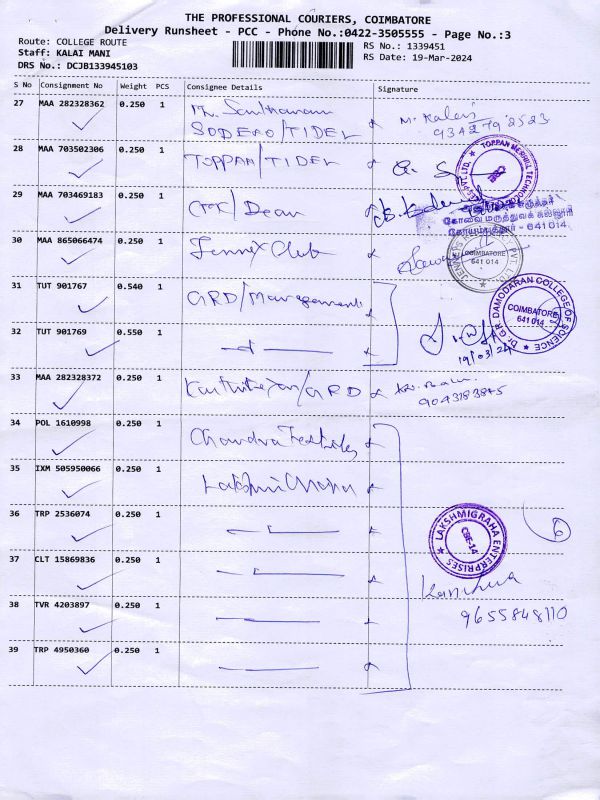 THE PROFESSIONAL COURIERS, COIMBATORE
Delivery Runsheet - PCC - Phone No.:0422-3505555 - Page No.:3
Route: COLLEGE ROUTE
Staff: KALAI MANI
DRS No.: DCJB133945103
RS No.: 1339451
RS Date: 19-Mar-2024
S No Consignment No Weight PCS Consignee Details Signature
27 MAA 282328362 0.250 1
SODERO/TIDEL
M. Kalai
9342792523
28 MAA 703502306 0.250 1 TOPPAN/TIDEL
TOPPAN MERRILL TECHNOLOGY
29 MAA 703469183 0.250 1 Dean
கோவை மருத்துவக் கல்லூரி
கோயமுத்தூர் - 641 014
30 MAA 865066474 0.250 1 Jennex Club
COIMBATORE
641 014
31 TUT 901767 0.540 1 GRD/Management
Dr. G.R. DAMODARAN COLLEGE OF SCIENCE
COIMBATORE
641 014
32 TUT 901769 0.550 1
19/03/24
33 MAA 282328372 0.250 1 /GRD
9043183845
34 POL 1610998 0.250 1 Chandra Textiles
35 IXM 505950066 0.250 1 Lakshmi
36 TRP 2536074 0.250 1
LAKSHMIGRAHA ENTERPRISES
CBE-14
6
37 CLT 15869836 0.250 1
38 TVR 4203897 0.250 1
9655848110
39 TRP 4950360 0.250 1